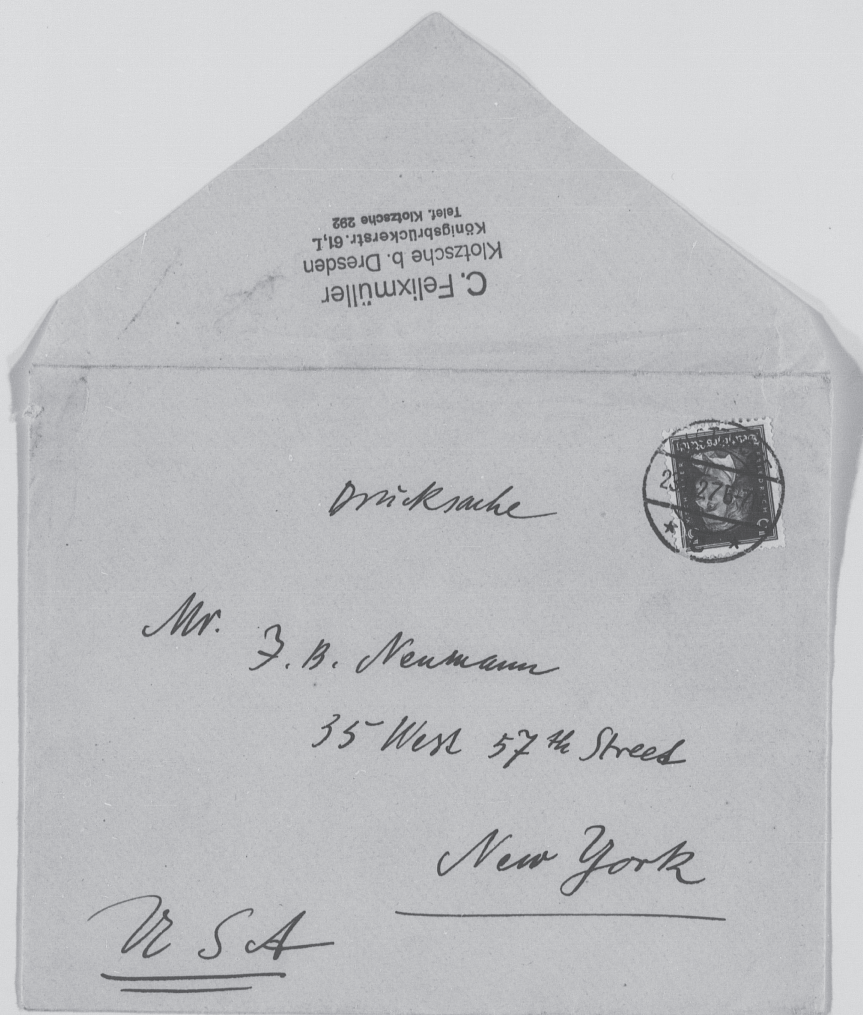 C. Felixmüller
Klotzsche b. Dresden
Königsbrückerstr. 61, I.
Telef. Klotzsche 292
Drucksache
Mr.
J. B. Neumann
35 West 57th Street
New York
USA